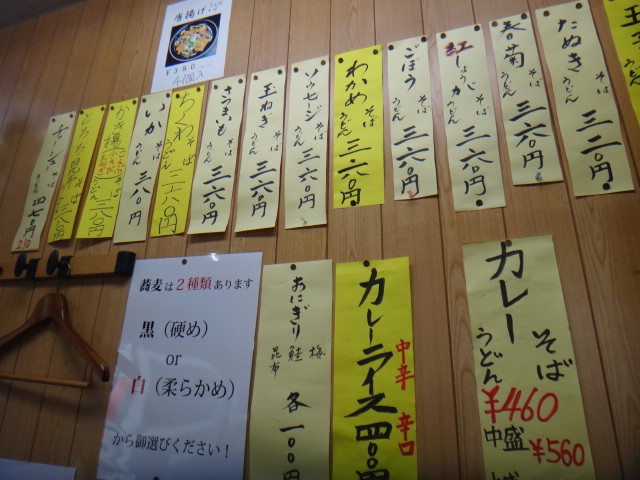 唐揚げ
¥350
4個入
たぬき そば うどん 三二〇円
春菊 そば うどん 三六〇円
紅しょうが そば うどん 三六〇円
ごぼう そば うどん 三六〇円
わかめ そば うどん 三六〇円
ソーセージ そば うどん 三六〇円
玉ねぎ そば うどん 三六〇円
さつまいも そば うどん 三六〇円
ちくわ そば うどん 三六〇円
いか そば うどん 三八〇円
かき揚 そば うどん 三八〇円
そば うどん 四七〇円
210
カレー そば うどん
¥460
中盛 ¥560
カレーライス 四〇〇円
中辛 辛口
おにぎり 梅 鮭 昆布 各一〇〇円
蕎麦は2種類あります
黒（硬め）
or
白（柔らかめ）
から御選びください！